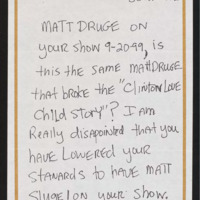 MATT DRUGE ON
your show 9-20-99, is
this the same Matt DRUGE
that broke the "Clinton LOVE
Child story"? I am
Really disapointed that you
have Lowered your
STANARDS to have MATT
SLUGE on your show.